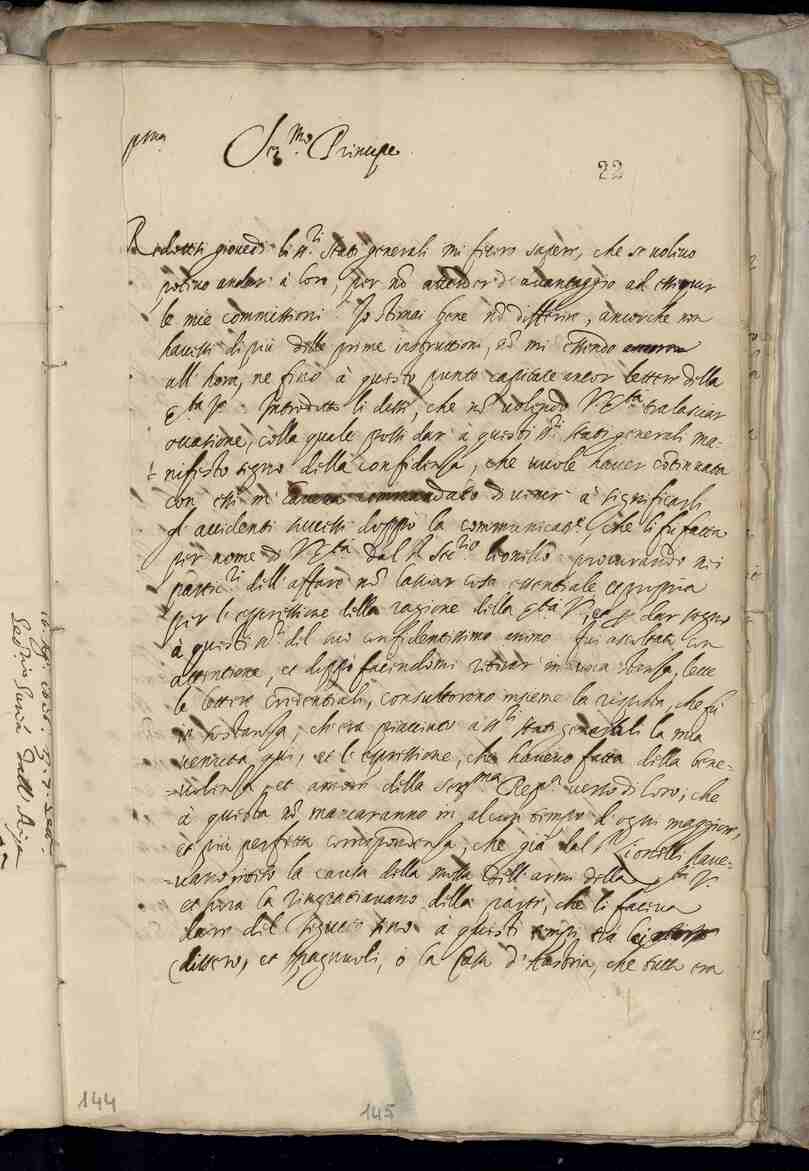 pma
Ser.mo Principe
22
Redottisi giovedi li ss.ri Stati generali mi fecero sapere, che se volevo
potevo andar à loro, per nõ attender d'avantaggio ad essequir
le mie commissioni. Io stimai bene nõ differire, ancorche non
havessi di più delle prime instruttioni, nõ mi essendo
all'hora, ne fino à questo punto capitate ancor lettere della
S.tà V.ª Introdotto li dissi, che nõ volendo V. S.tà tralasciar
occasione, colla quale possi dar à questi ss.ri Stati generali ma-
nifesto segno della confidenza, che vuole haver cõtinuata
con essi mi di venir à significarli
gl'accidenti successi doppo la communicat.e, che li fu fatta
per nome di V. S.tà dal s.r Sec.rio Lionello procurando nei
partic.ri dell'affare nõ lasciar cosa essentiale et propria
per l'espressione della ragione della S.tà V.ª, et p dar segno
à questi ss.ri del suo confidentissimo animo fui ascoltato con
attentione, et doppo facendomi ritirar in una stanza, lette
le lettere credentiali, consultorono insieme la risposta, che fù
in sostanza, ch'era piacciuto à ss.ri Stati generali la mia
venuta qui, et l'espressione, che havevo fatta della bene-
volenza, et amore della Ser.ma Rep.ca verso di loro; che
à questa nõ mancaranno in alcun tempo d'ogni maggiore,
et più perfetta corrispondenza, che già dal s.r Lionelli have-
vano inteso la causa della mossa dell'armi della S.tà V.ª
et hora la ringratiavano della parte, che li faceva
dare del seguito sino à questi tempi trà lei
(dissero, et spagnuoli, ò la Casa d'Austria, che tutto era
144
145